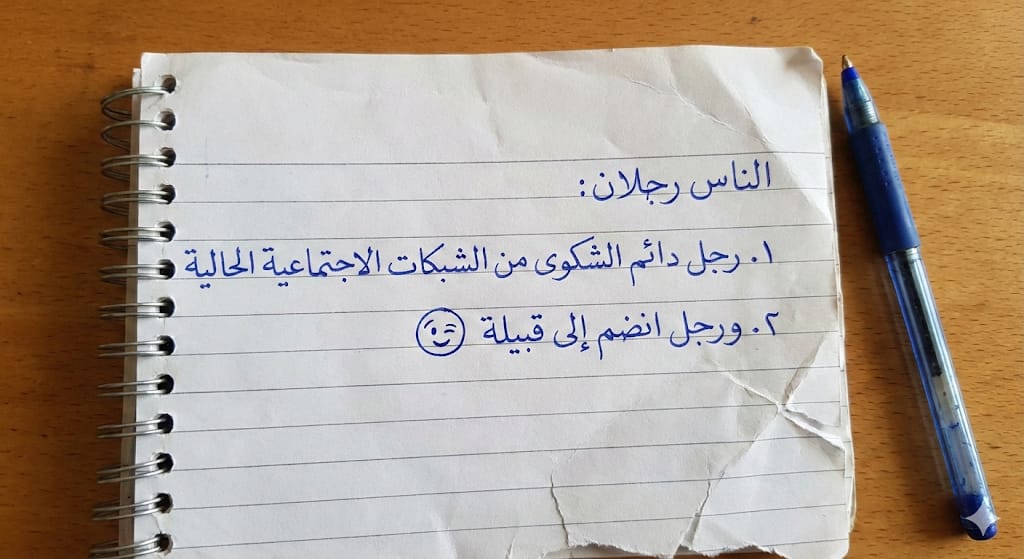 الناس رجلان:
١. رجل دائم الشكوى من الشبكات الاجتماعية الحالية
٢. ورجل انضم إلى قبيلة 😉